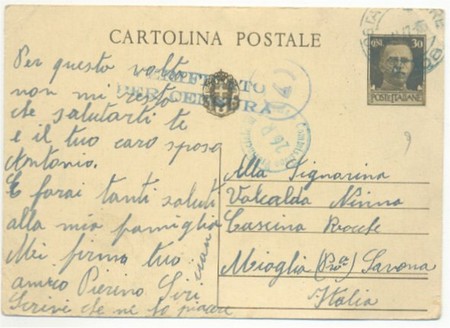 CARTOLINA POSTALE
CENT. 30
POSTE ITALIANE
PER CENSURA
Per questo volta
non mi resto
che salutarti te
e il tuo caro sposo
Antonio.
E farai tanti saluti
alla mia famiglia
Mi firmo tuo
amico Pierino
ciau
Scrivi che mi fa piacere
Alla Signorina
Valcalda Ninna
Cascina Rocche
Mioglia (Pro.a) Savona
Italia